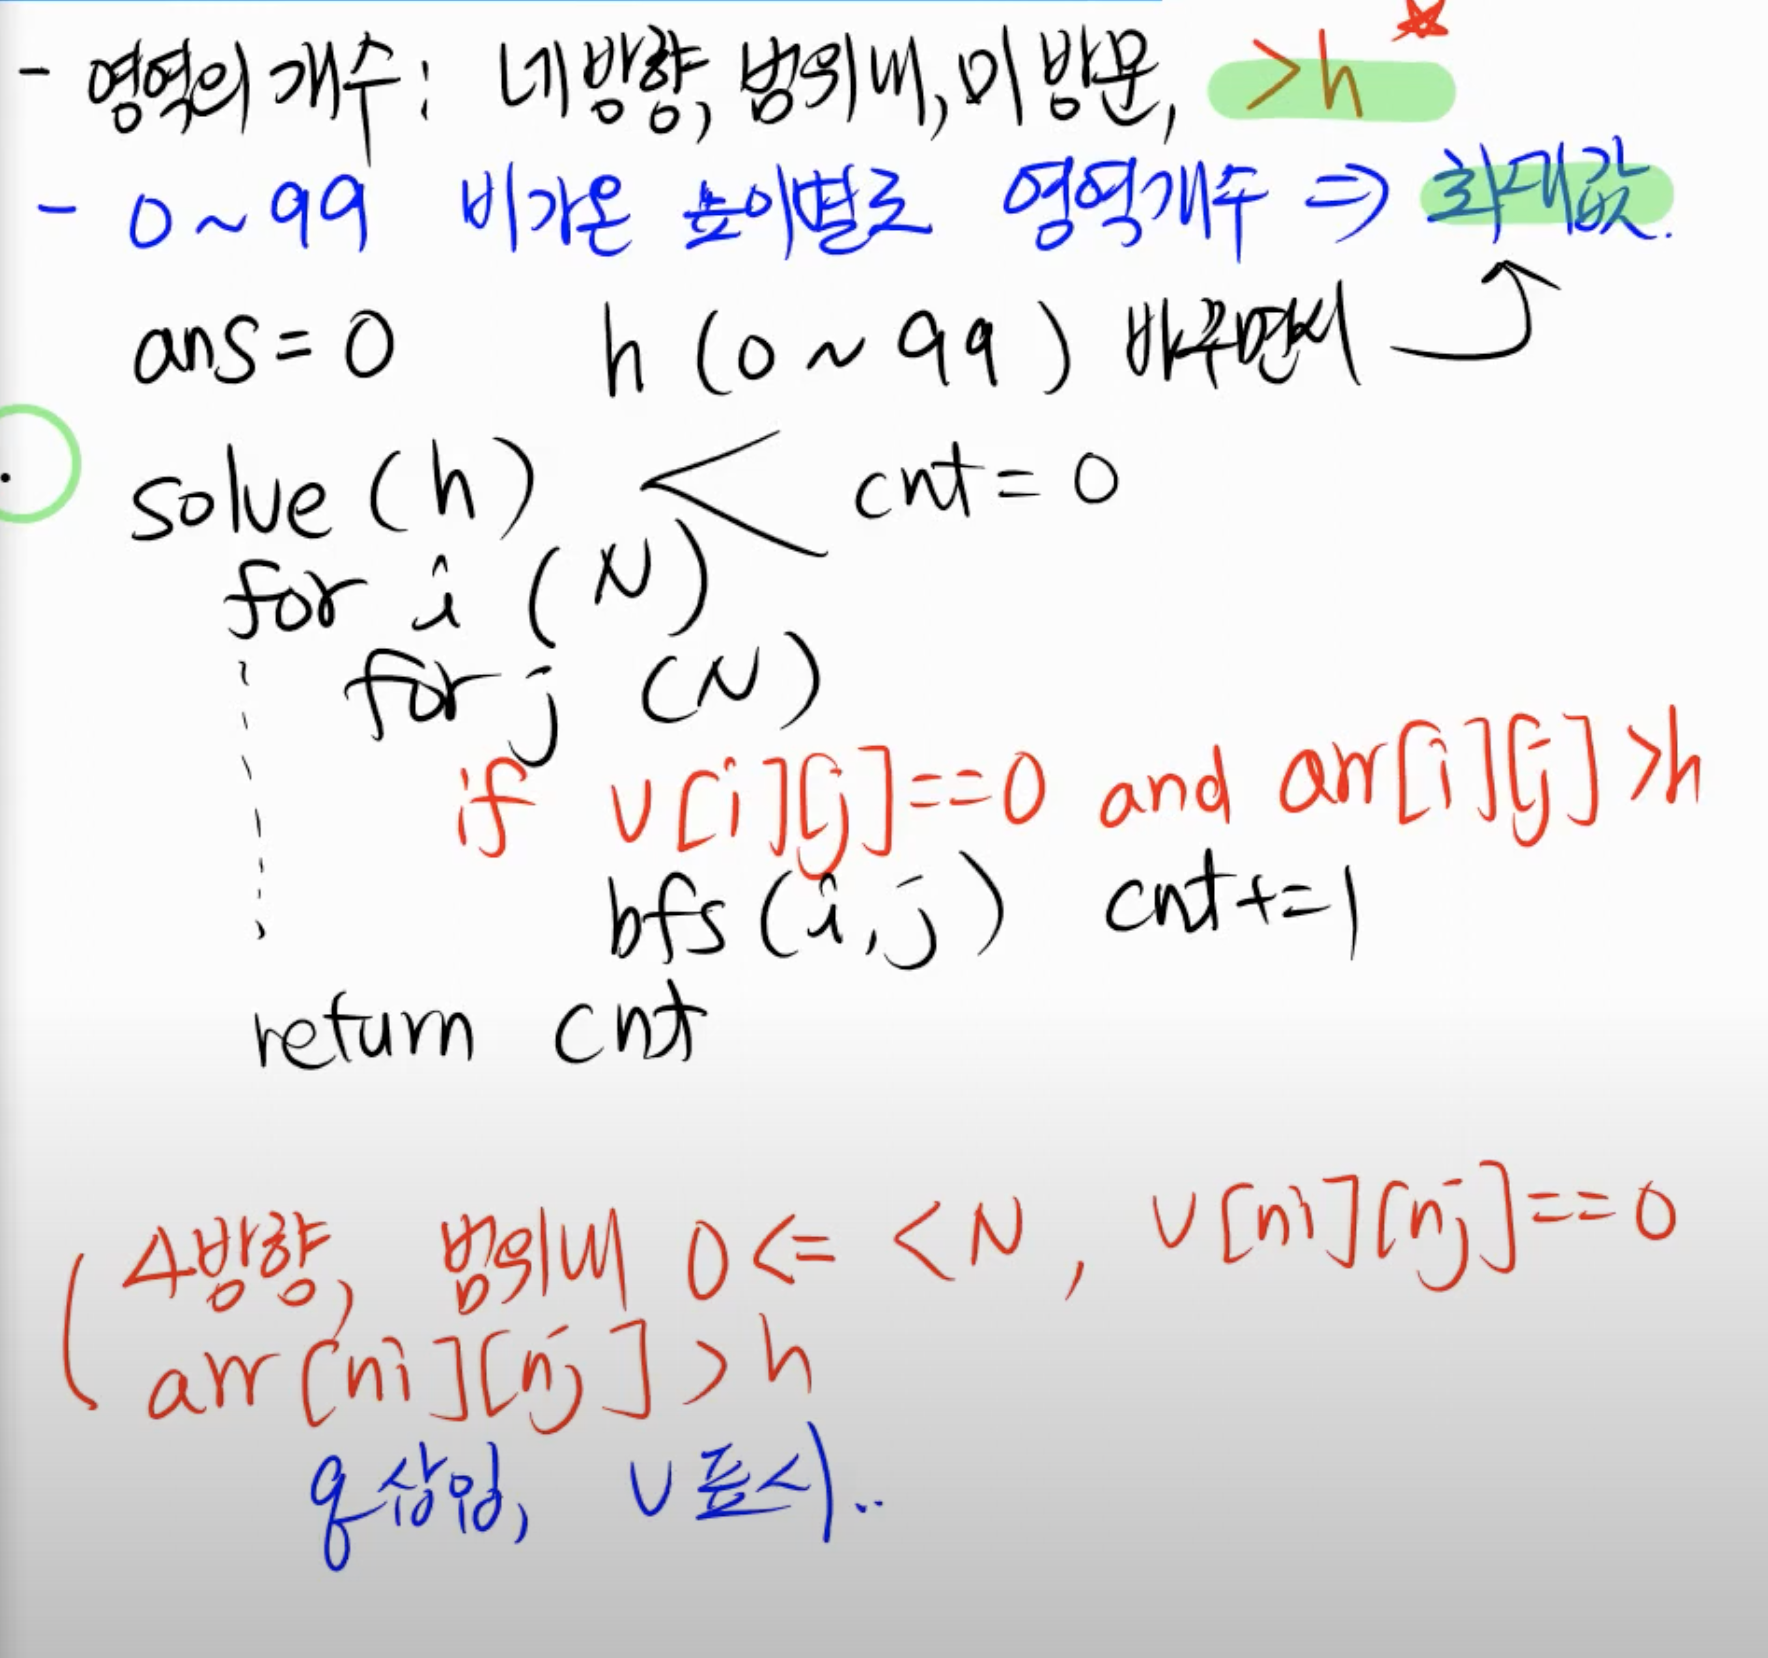 - 영역의 개수: 네방향, 범위내, 미방문, >h
- 0~99 비가온 높이별로 영역개수 ⇒ 최대값.
ans=0 h (0~99) 바꾸면서
solve(h) < cnt=0
for i (N)
for j (N)
if v[i][j]==0 and arr[i][j]>h
bfs(i,j) cnt+=1
return cnt
4방향, 범위내 0<= <N, v[ni][nj]==0
arr[ni][nj]>h
q삽입, v표시..